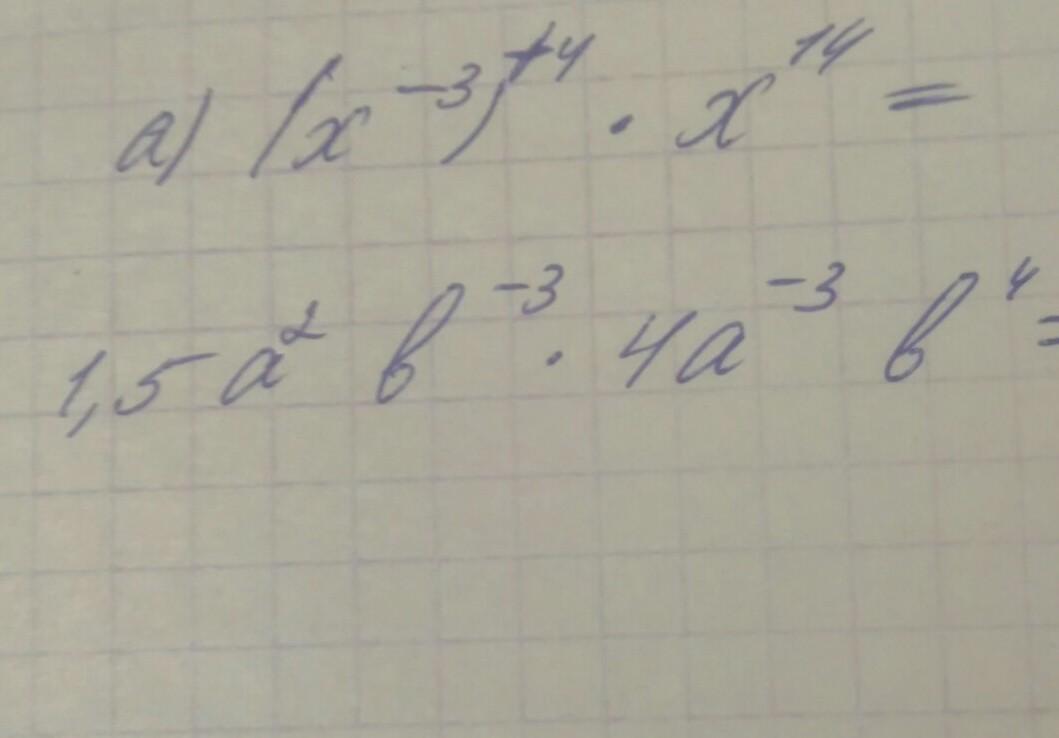 а) (x⁻³)⁺⁴ · x¹⁴ =
1,5 a² b⁻³ · 4a⁻³ b⁴ =